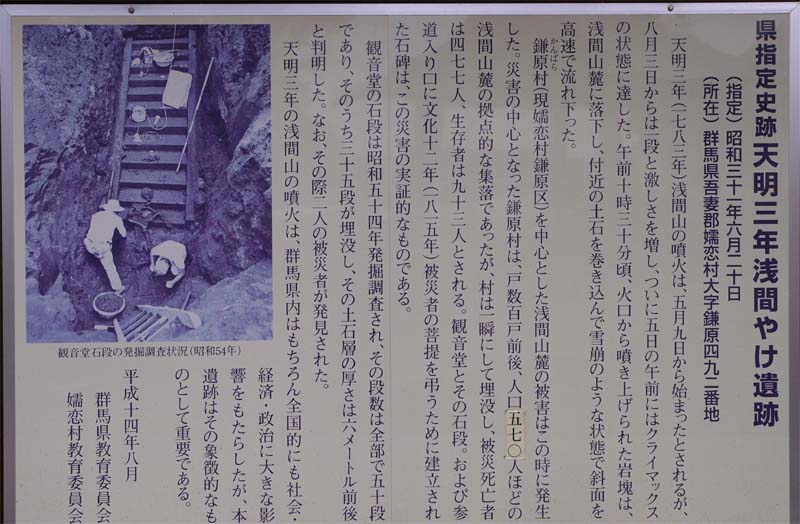 県指定史跡 天明三年浅間やけ遺跡
(指定) 昭和三十一年六月二十日
(所在) 群馬県吾妻郡嬬恋村大字鎌原四九二番地
天明三年(一七八三年)浅間山の噴火は、五月九日から始まったとされるが、
八月三日からは一段と激しさを増し、ついに五日の午前にはクライマックス
の状態に達した。午前十時三十分頃、火口から噴き上げられた岩塊は、
浅間山麓に落下し、付近の土石を巻き込んで雪崩のような状態で斜面を
高速で流れ下った。
かんばら
鎌原村(現嬬恋村鎌原区)を中心とした浅間山麓の被害はこの時に発生
した。災害の中心となった鎌原村は、戸数百戸前後、人口五七〇人ほどの
浅間山麓の拠点的な集落であったが、村は一瞬にして埋没し、被災死亡者
は四七七人、生存者は九十三人とされる。観音堂とその石段。および参
道入り口に文化十二年(一八一五年)被災者の菩提を弔うために建立され
た石碑は、この災害の実証的なものである。
観音堂の石段は昭和五十四年発掘調査され、その段数は全部で五十段
であり、そのうち三十五段が埋没し、その土石層の厚さは六メートル前後
と判明した。なお、その際二人の被災者が発見された。
天明三年の浅間山の噴火は、群馬県内はもちろん全国的にも社会・
経済・政治に大きな影
響をもたらしたが、本
遺跡はその象徴的なも
のとして重要である。
平成十四年八月
群馬県教育委員会
嬬恋村教育委員会
観音堂石段の発掘調査状況(昭和54年)